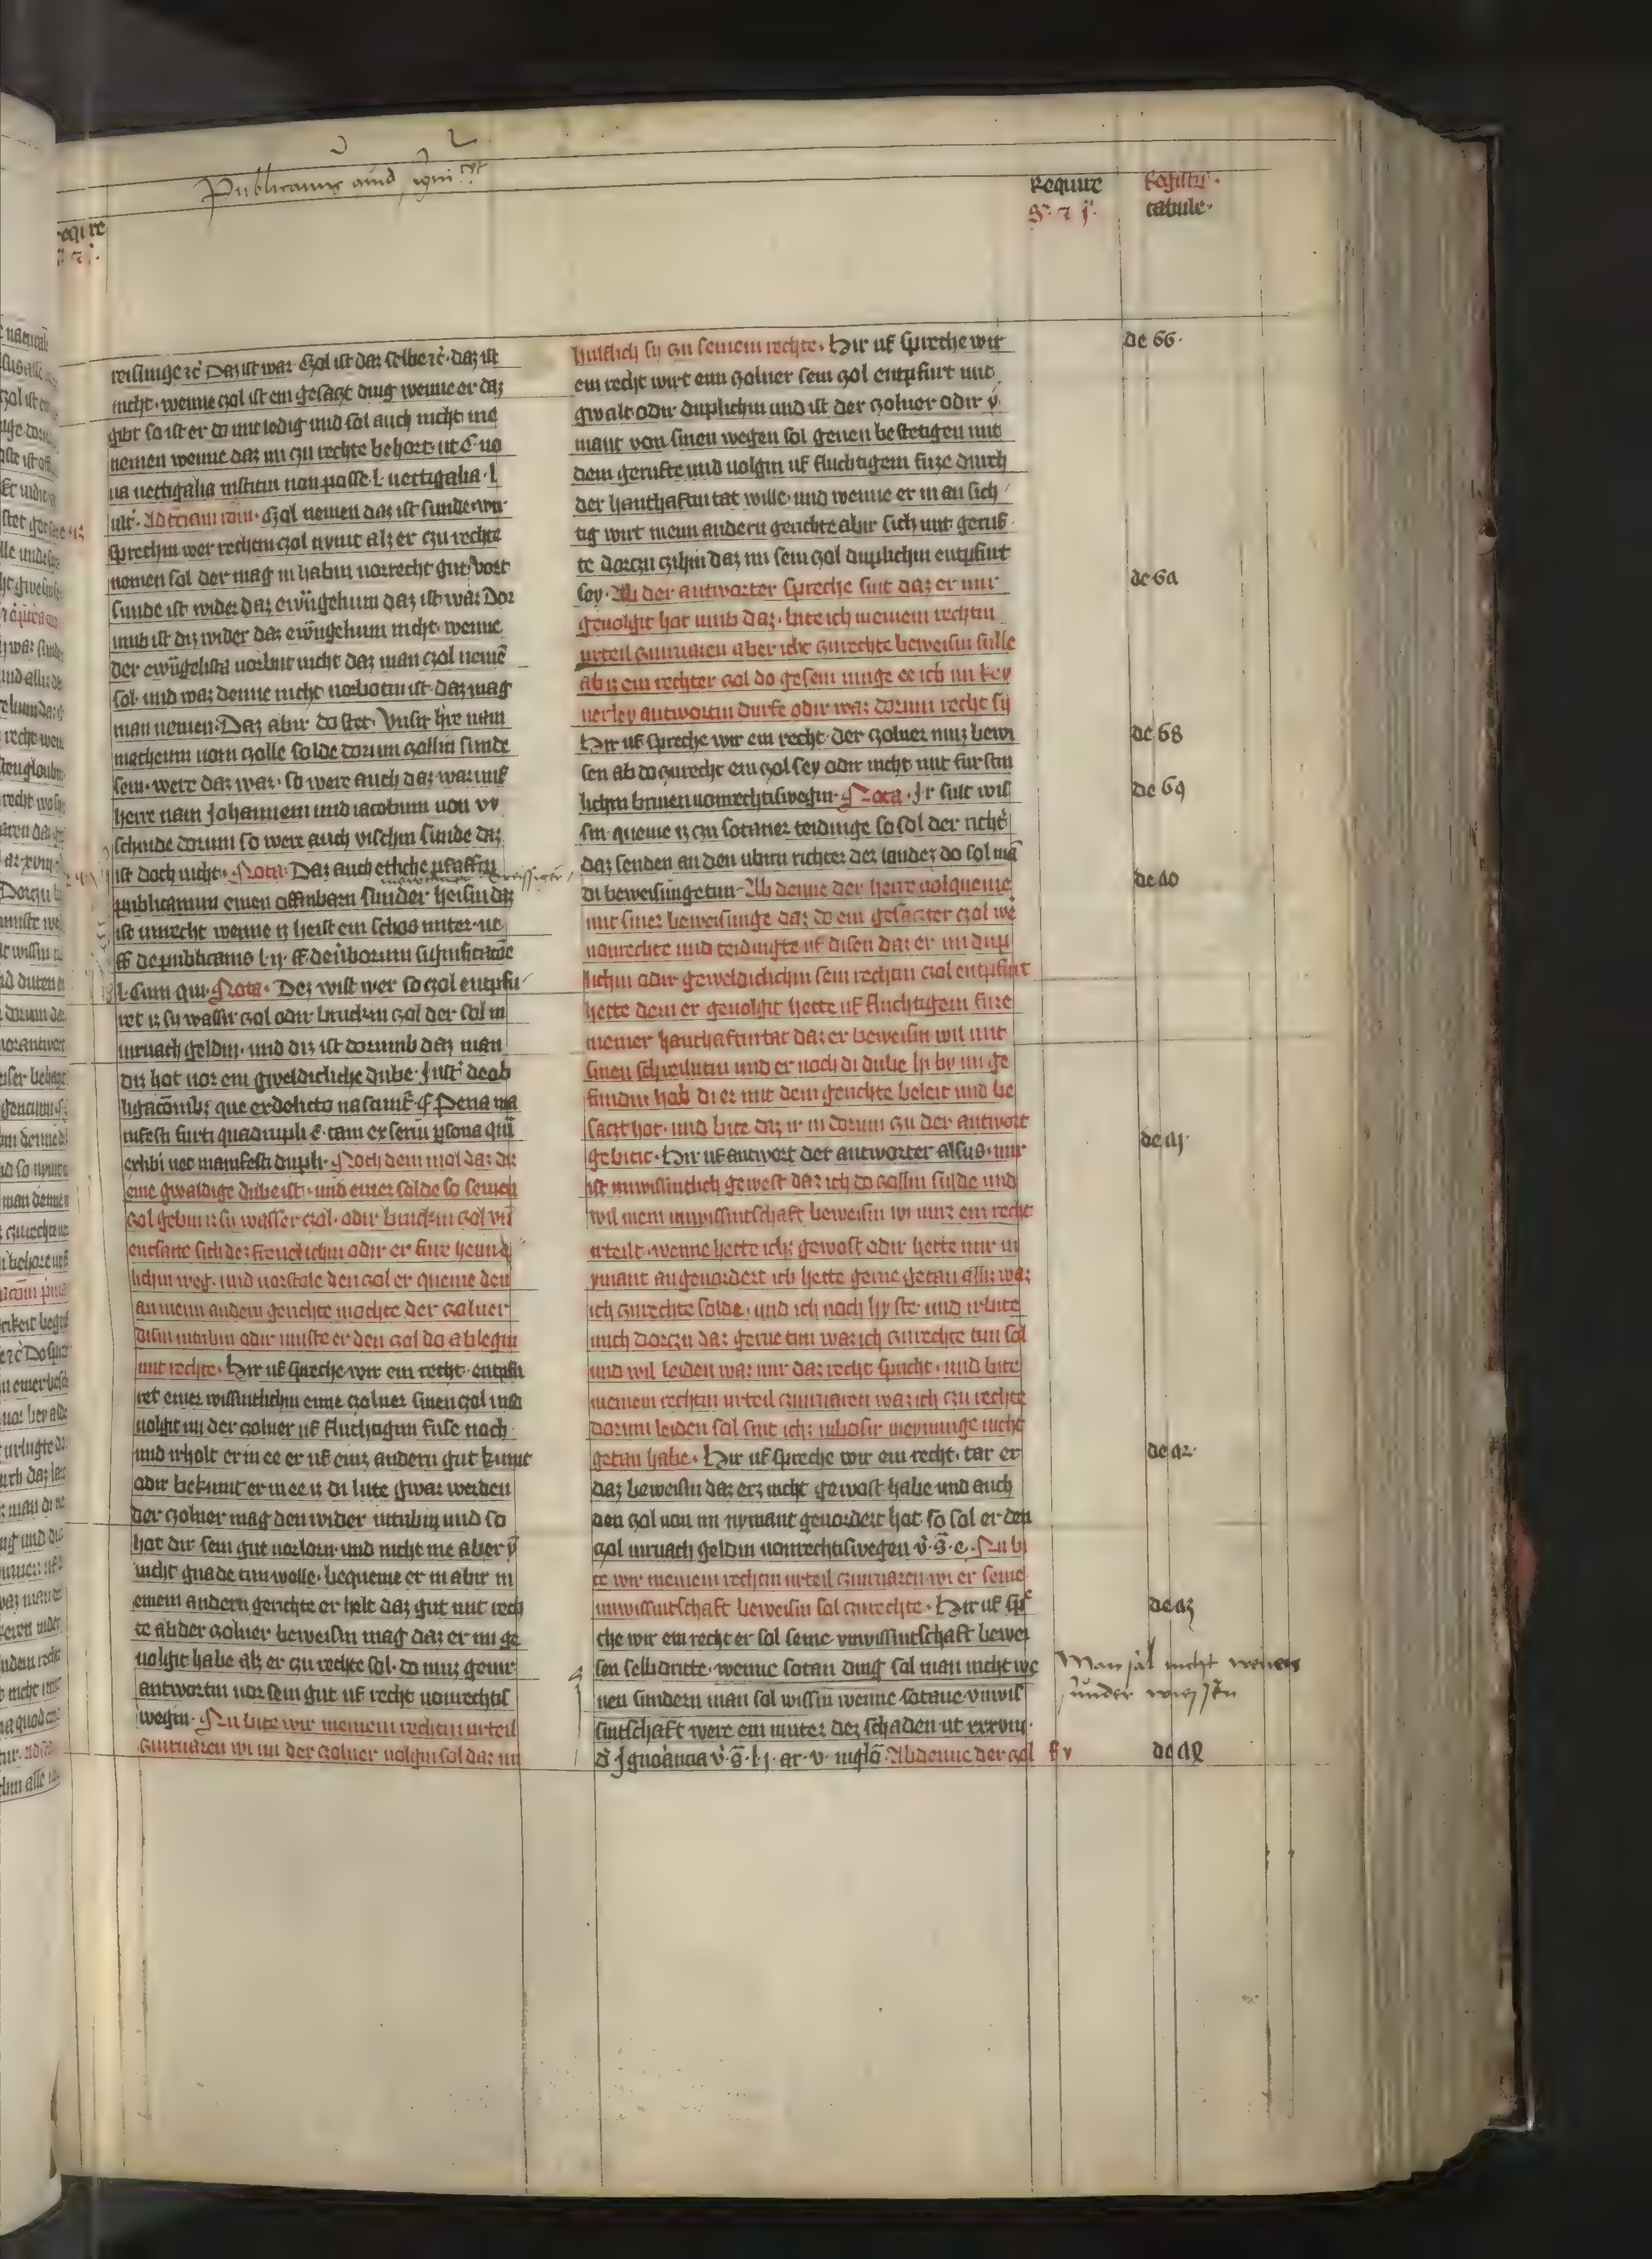 Require
Registrum
tabule.
reisunge etc. Daz ist war. Czol ist daz selbe etc. daz ist
nicht. wenne czol ist ein gesaczt ding wenne er daz
gibt so ist er do mite ledig und sol auch nicht me
nemen wenne daz im czu rechte behort. ut C. no
ua uectigalia institui non posse. l. uectigalia. l
ult. Czol nemen daz ist sunde wir
sprechin wer rechten czol nymt alz er czu rechte
nemen sol der mag in habin uorrecht gut
sunde ist wider daz ewangelium daz ist war. Dor
umb ist diz wider daz ewangelium nicht. wenne
der ewangelista uorbut nicht daz man czol neme
sol. und waz denne nicht uorbotin ist. daz mag
man nemen. Daz abir do stet. Unsir h're nam
matheum vom czolle solde dorum czollin sunde
sein. were daz war. so were auch daz war uns
herre nam Johannem und iacobum von vi
schinde dorum so were auch vischin sunde daz
ist doch nicht. Nota. Daz auch etliche pfaffin
publicanum einen offinbarn sunder heisin daz
ist unrecht wenne iz heist ein schos
ff de publicanis l. ij. ff de uerborum significatione
l. Cum qui. Nota. Dez wist wer so czol entpfu
ret iz sy wassir czol odir bruckin czol der sol in
uiruach geldin. und diz ist dorumb daz man
diz hot uor ein gweldicliche dube. Just. de ob
ligationibus que ex delicto nascuntur. Pena ma
nifesti furti quadrupli e. tam ex serui persona quam
exhibi nec manifesti dupli. Noch dem mol daz diz
eine gwaldige dube ist. und einer solde so seinen
czol gebin iz sy wasser czol. odir bruckin czol und
entsacte sich dez freuelichin odir er fure heimlich
lichin weg. und uorstole den czol er queme den
an mein andern gerichte mochte der czolner
disin intribin odir muste er den czol do ablegin
mit rechte. Hir uf spreche wir ein recht. entpfu
ret einer wissintlichin eime czolner sinen czol und
uolgit im der czolner uf fluchtigin fuse noch
und irholt er in ee er uf einz andern gut kumt
odir bekumt er in ee iz di lute gwar werden
der czolner mag den wider intribin und so
hat dir sein gut uorlorn. und nicht me aber
nicht gnade tun wolle. bequeme er in abir in
einem andern gerichte er helt daz gut mit rech
te ab der czolner beweisin mag daz er im ge
uolgit habe alz er czu rechte sol. do muz genir
antwortin uor sein gut uf recht uonrechtis
wegin. Nu bite wir meinem rechtin urteil
czuiruaren wi im der czolner uolgin sol daz im
hulflich sy czu seinem rechte. Hir uf spreche wir
ein recht wirt eim czolner sein czol entpfurt mit
gwalt odir duplichin und ist der czolner odir y
mant von sinen wegen sol genen bestetigen mit
dem gerufte und uolgin uf fluchtigem fuze durch
der hanthaftin tat wille. und wenne er in an sich
tig wirt in eim andern gerichte abir sich mit geruf
te dorczu czihin daz im sein czol duplichin entpfurt
sey. Ab der antworter spreche sint daz er mir
geuolgit hot umb daz. bite ich meinem rechtin
urteil czuiruaren aber icht czurechte beweisin sulle
ab iz ein rechter czol do gesein muge ee ich im key
nerley antwortin durfe odir waz dorum recht sy
Hir uf spreche wir ein recht. der czolner muz bewi
sen ab do czurecht ein czol sey odir nicht mit furstin
lichin briuen uonrechtiswegin. Nota. Ir sult wis
sin queme iz czu sotaner teidinge so sol der richter
daz senden an den ubirn richter dez landez do sol man
di beweisunge tun. Ab denne der herre uolqueme
mit siner beweisunge daz do ein gesaczter czol we
uonrechte und teidingte uf disen daz er im dup
lichin odir geweldiclichin sein rechtin czol entpfurt
hette dem er geuolgit hette uf fluchtigem fuze
in einer hanthaftin tat daz er beweisin wil mit
sinen schreilutin und er noch di dube hi by im ge
fundin hab di er mit dem gerichte beleit und be
saczt hot. und bite daz ir in dorum czu der antwort
gebitit. Hir uf antwort der antworter alsus. mir
ist unwissintlich gewest daz ich do czollin sulde und
wil mein unwissintschaft beweisin wi mirz ein recht
irteilt. wenne hette ichz gewost odir hette mir in
ymant angeuordert ich hette gerne getan allz waz
ich czurechte solde. und ich noch hy ste. und irbite
mich dorczu daz gerne tun waz ich czurechte tun sol
und wil leiden waz mir daz recht spricht. und bite
meinem rechtin urteil czuiruaren waz ich czu rechte
dorum leiden sol sint ichz in bosir meynunge nicht
getan habe. Hir uf spreche wir ein recht. tar er
daz beweisin daz erz nicht gewost habe und auch
den czol von im nymant geuordert hat so sol er den
czol uiruach geldin uonrechtiswegen. Nu bi
te wir meinem rechtin urteil czuiruaren wi er seine
unwissintschaft beweisin sol czurechte. Hir uf spre
che wir ein recht er sol seine unwissintschaft bewei
sen selbdritte. wenne sotan ding sal man nicht we
nen sundern man sol wissin wenne sotane unwis
sintschaft were ein muter dez schaden ut xxxviii.
d. Ignorancia. l. j. ar. v. in glo. Ab denne der czol
de 66.
de 6a
de 68
de 69
de a0
de a1.
de a2.
de a3
Man sal nicht wenen
sunder wissen
de a4